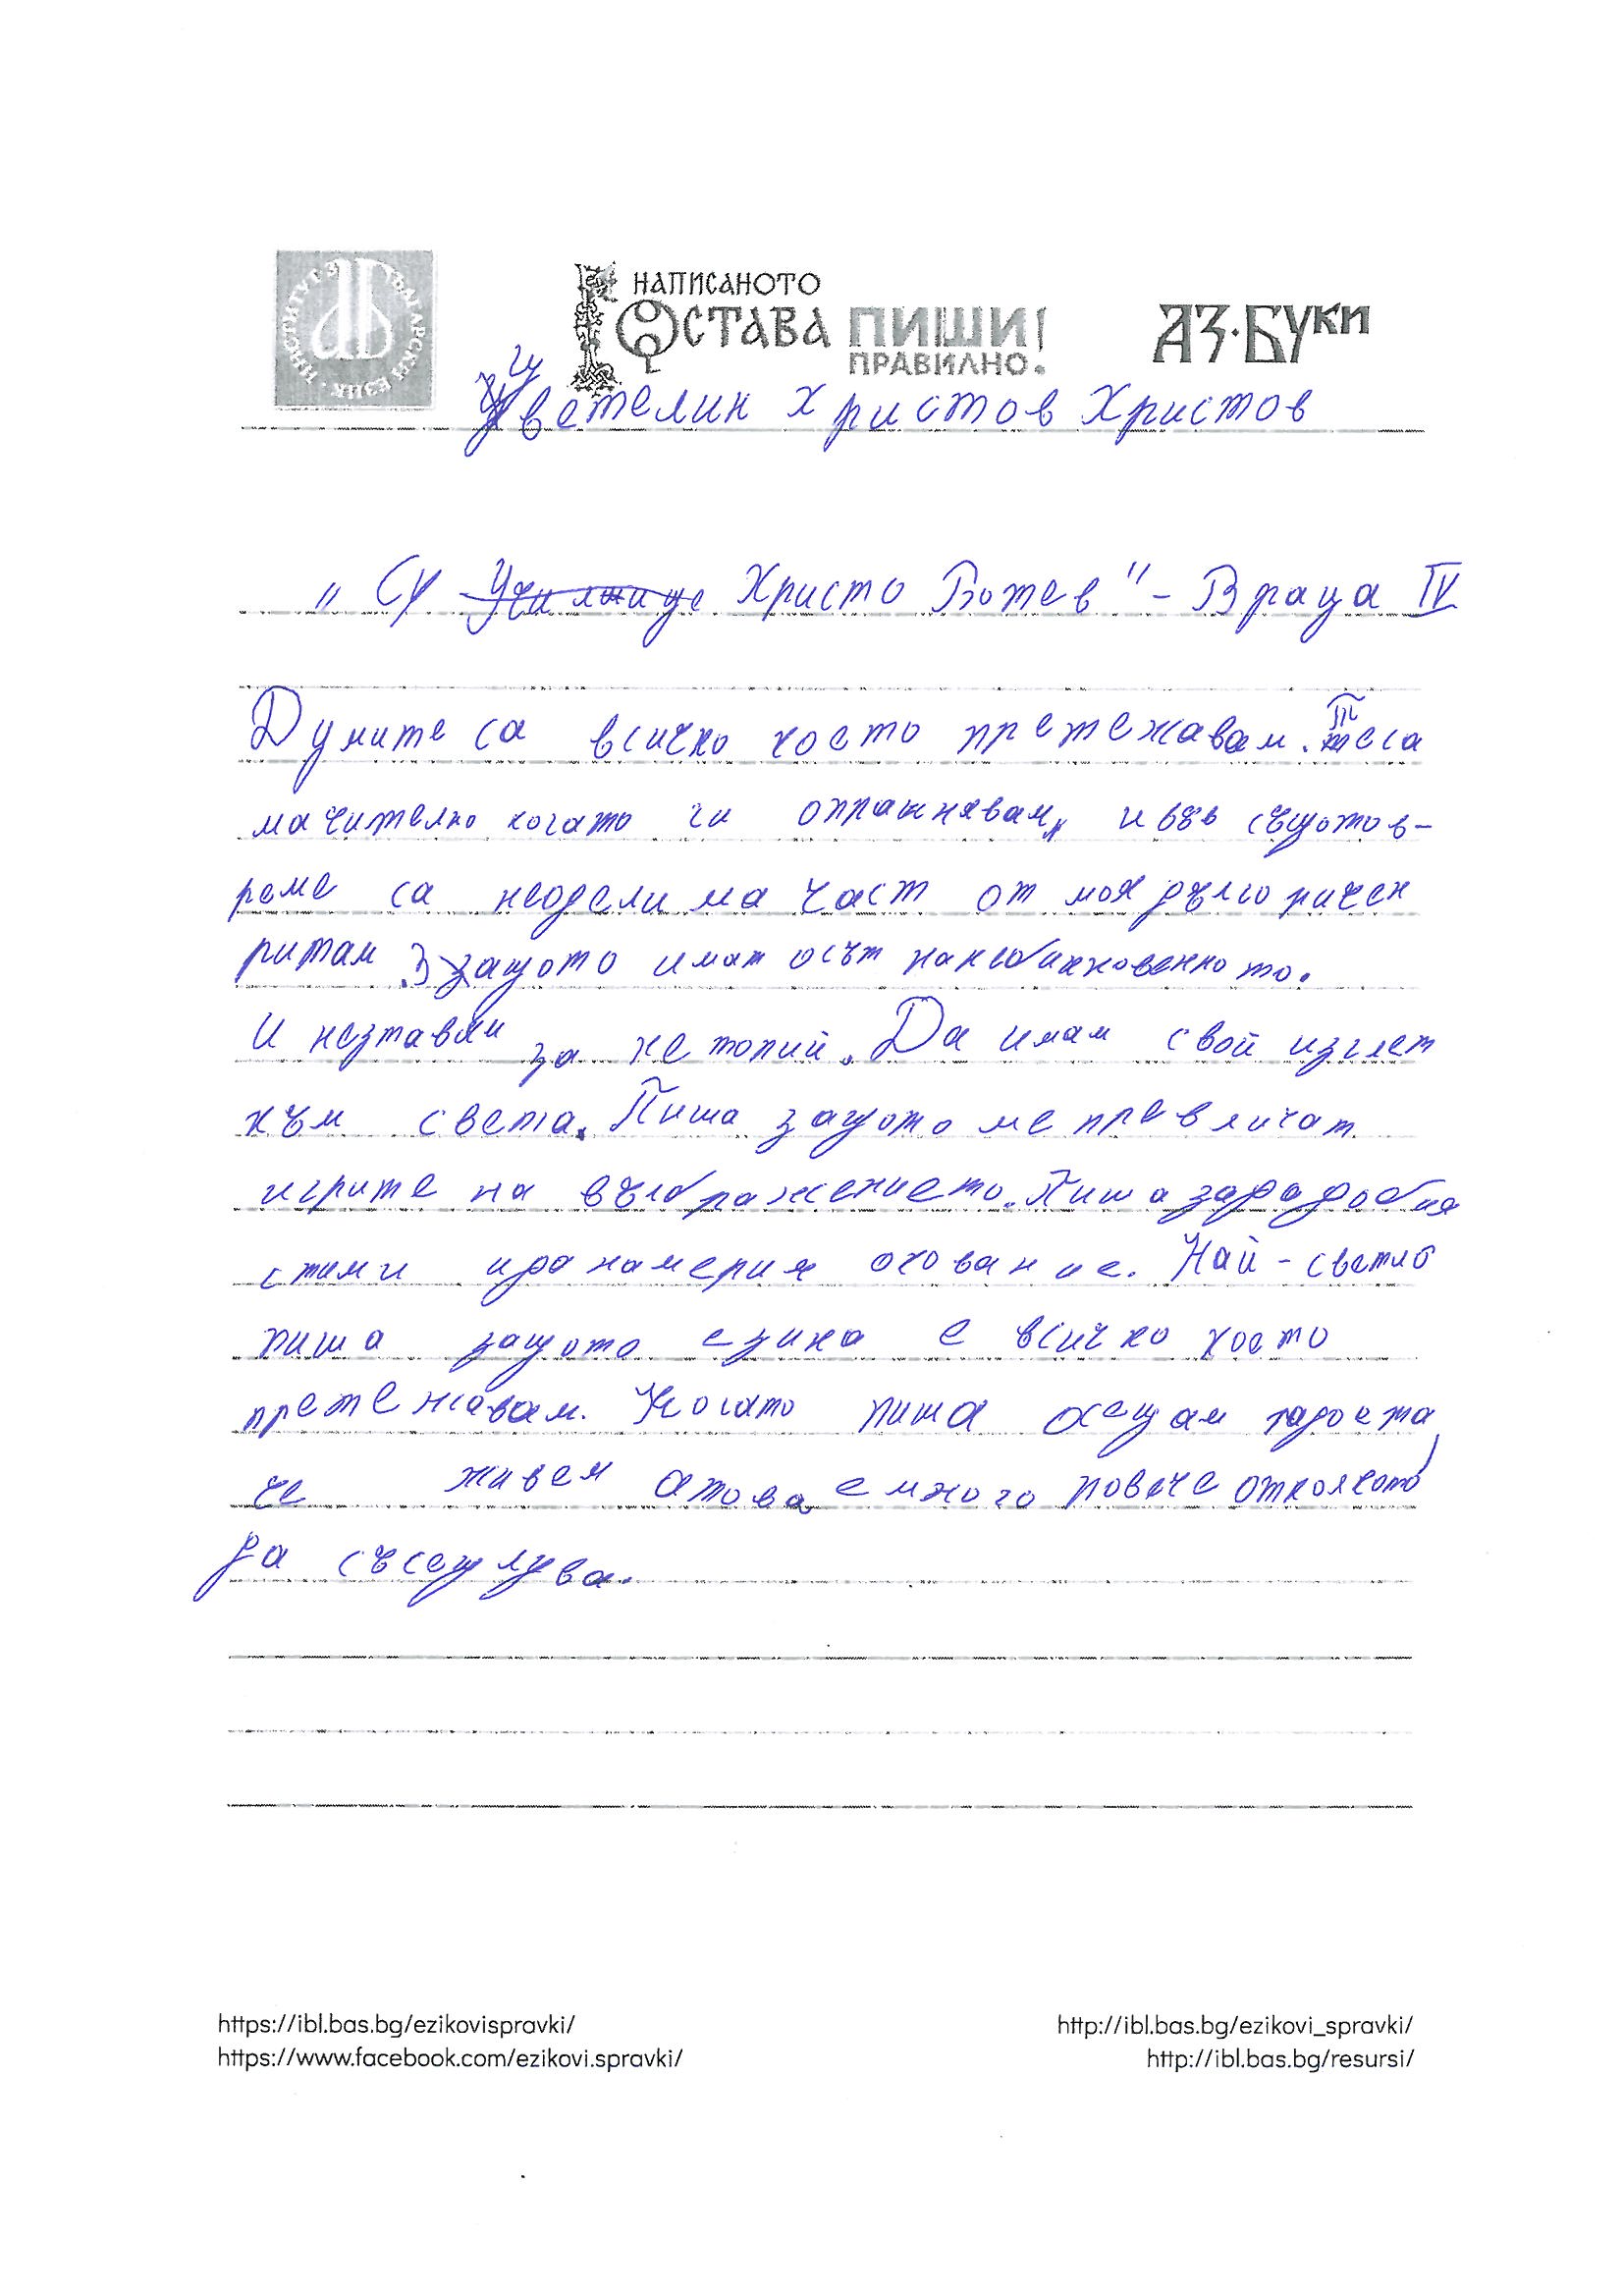 ИНСТИТУТ ЗА БЪЛГАРСКИ ЕЗИК
НАПИСАНОТО
ОСТАВА ПИШИ!
ПРАВИЛНО.
АЗ·БУКИ
Цветелин Христов Христов
„СУ Училище Христо Ботев" - Враца IV
Думите са всичко което претежавам. Те са
мачително когато ги опражнявам, и във същотов-
реме са неоделима част от моя ритам
Защото имат осът на необикновенното.
И незтавам за не топий. Да имам свой изглет
към света. Пиша защото ме превличат
игрите на въображението. Пиша за да добия
стими и да намерия охование. Най-светло
пиша защото езика е всичко което
претежавам. Когато пиша осещам радоста
че живея а това е много повече отколкото
да съсещулува.
https://ibl.bas.bg/ezikovispravki/ http://ibl.bas.bg/ezikovi_spravki/
https://www.facebook.com/ezikovi.spravki/ http://ibl.bas.bg/resursi/